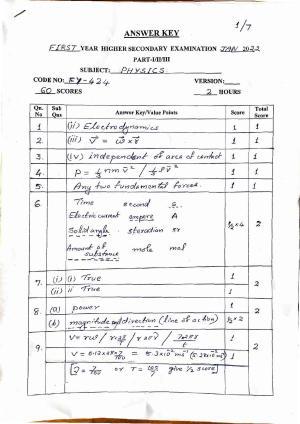 1/7
ANSWER KEY
FIRST YEAR HIGHER SECONDARY EXAMINATION JAN 2022
PART-I/II/III
SUBJECT: PHYSICS
CODE NO: FY-424 VERSION:
60 SCORES 2 HOURS
Qn. No Sub Qns Answer Key/Value Points Score Total Score
1 (ii) Electrodynamics 1 1
2 (iii) V⃗ = ω⃗ × r⃗ 1 1
3. (iv) independent of area of contact 1 1
4. P = 1/3 nm v̄² / 1/3 ρ v̄² 1 1
5. Any two fundamental forces. 1 1
6 Time second s.
Electric current ampere A
Solid angle steradian sr ½×4 2
Amount of substance mole mol
7. (i) (i) True 1
(ii) ii True 1 2
8. (a) power 1
(b) magnitude and direction (line of action) ½×2 2
9. 1
= 5.3×10⁻² ms⁻¹ 1 2
or give ½ score]